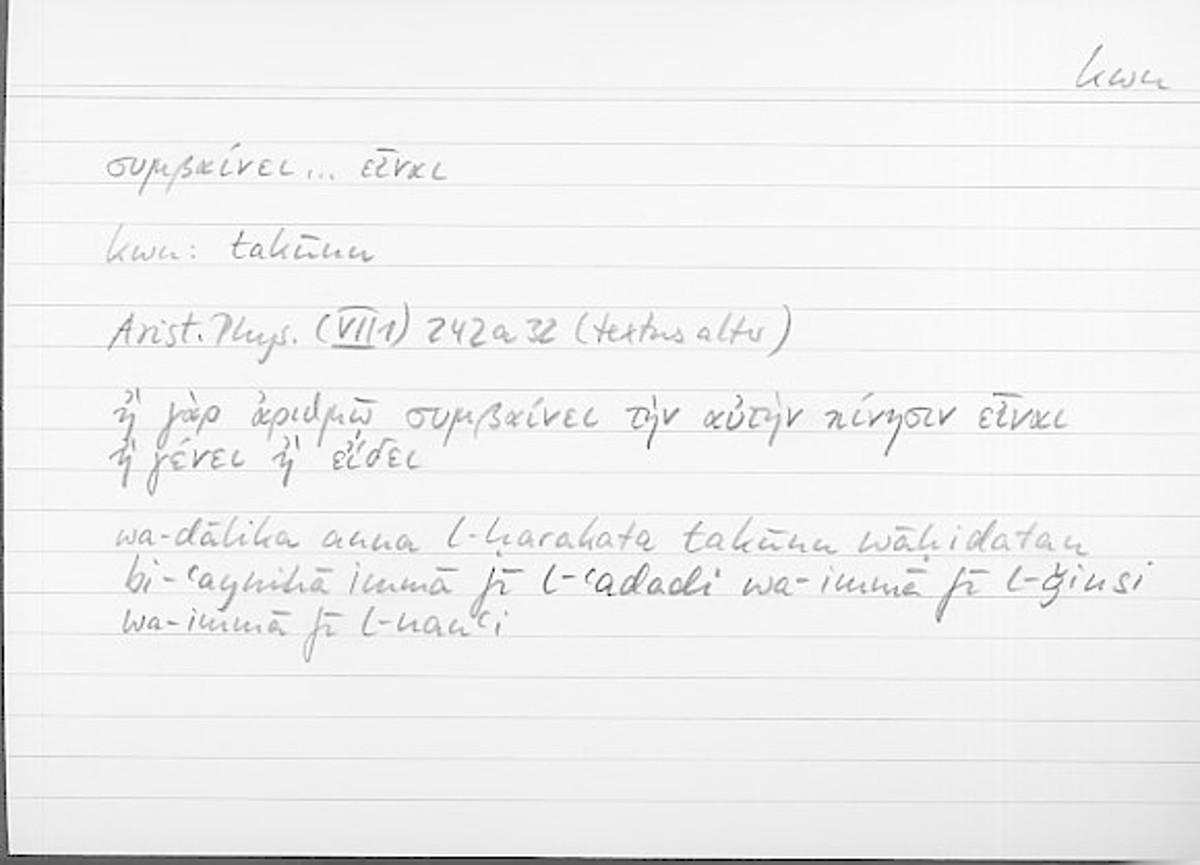 kwn
συμβαίνει... εἶναι
kwn: takūnu
Arist. Phys. (VII1) 242a32 (textus alter)
ἢ γὰρ ἀριθμῷ συμβαίνει τὴν αὐτὴν κίνησιν εἶναι
ἢ γένει ἢ εἴδει
wa-ḏālika anna l-ḥarakata takūnu wāḥidatan
bi-ʿaynihā immā fī l-ʿadadi wa-immā fī l-ǧinsi
wa-immā fī l-nawʿi